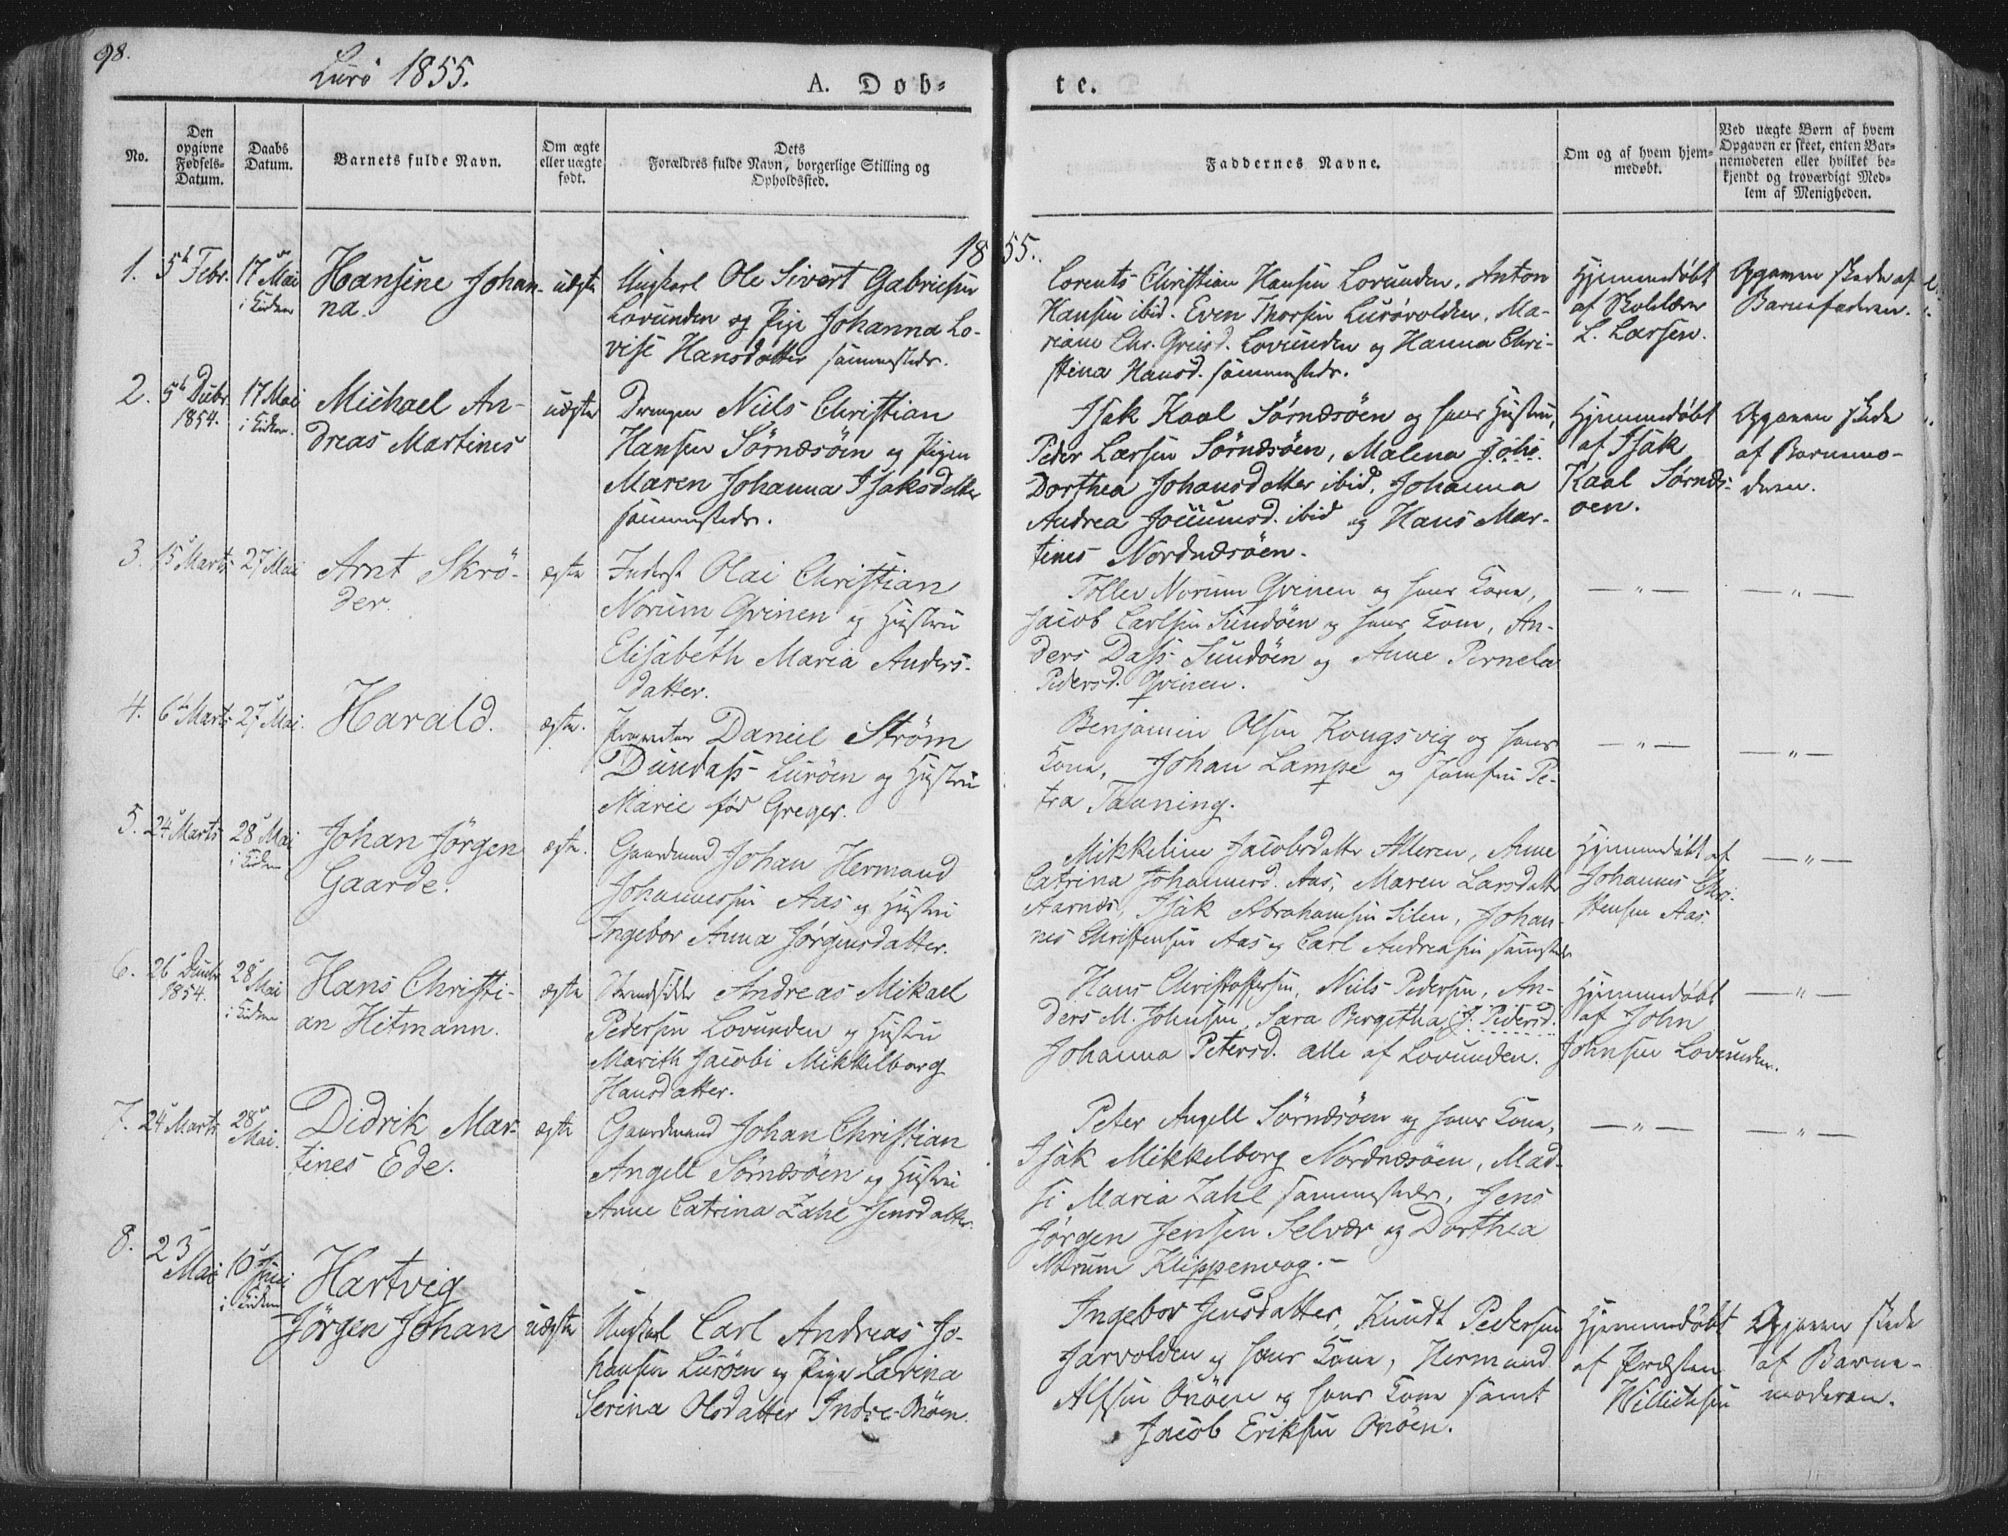 98.
Lurö 1855.
A. Døb-
te.
No.
Den opgivne Fødsels-Datum.
Daabs Datum.
Barnets fulde Navn.
Om ægte eller uægte født.
Dets
Forældres fulde Navn, borgerlige Stilling og
Opholdssted.
Faddernes Navne.
Om og af hvem hjem-
medøbt.
Ved uægte Børn af hvem
Opgaven er skeet, enten Bar-
nemoderen eller hvilket be-
kjendt og troværdigt Med-
lem af Menigheden.
1855.
1. 5 Febr. 17 Mai
Hansine Johan-
na.
uægte
Ungkarl Ole Sivert Gabrielsen
Lovunden og Pige Johanna Lo-
vise Hansdatter sammesteds.
Lorents Christian Hansen Lovunden, Anton
Hansen ibid. Even Thorsen Lurövolden, Ma-
riane Chr. Lovunden og Hanna Chri-
stina Hansd. sammesteds.
Hjemmedöbt
af Skolelærer
L. Larsen.
Opgaven skede af
Barnefaderen.
2. 5 Decbr 1854. 17 Mai
Michael An-
dreas Martines
uægte
Drengen Niels Christian
Hansen Sörnæsöen og Pigen
Maren Johanna Isaksdatter
sammesteds.
Isak Kaal Sörnæsöen og hans Hustru,
Peder Larsen Sörnæsöen, Malena
Dorthea Johansdatter ibid, Johanna
Andrea ibid og Hans Mar-
tines Nordnæsöen.
Hjemmedöbt
af Isak
Kaal Sörnæs-
öen.
Opgaven skede
af Barnemo-
deren.
3. 15 Marts 27 Mai
Arnt Skrö-
der.
ægte
Inderst Olai Christian
Norum Qvinen og Hustru
Elisabeth Maria Anders-
datter.
Toller Norum Qvinen og hans Kone,
Jacob Carlsen Sundöen og hans Kone, An-
ders Dass Sundöen og Anne Pernela
Pedersd. Qvinen.
— " —
— " —
4. 6 Marts 27 Mai.
Harald.
ægte.
Daniel Ström
Dundass Luröen og Hustru
Marie föd Greger.
Benjamin Olsen Kongsvig og hans
Kone, Johan Lampe og Jomfru Pe-
tra Tauning.
— " —
— " —
5. 24 Marts 28 Mai
Johan Jörgen
Gaarde.
ægte.
Gaardmand Johan Hermand
Johannessen Aas og Hustru
Ingebor Anna Jörgensdatter.
Mikkeline Jacobsdatter Alleren, Anne
Catrina Johannesd. Aas, Maren Larsdatter
Aarnæs, Isak Abrahamsen Silen, Johan-
nes Christensen Aas og Carl Andreasen
Hjemmedöbt af
Johannes Chri-
stensen Aas.
— " —
6. 26 Decmbr 1854. 28 Mai
Hans Christi-
an Hitmann.
ægte
Strandsidder Andreas Mikael
Pedersen Lovunden og Hustru
Marith Jacobi Mikkelborg
Hansdatter.
Hans Christoffersen, Niels Pedersen, An-
ders M. Johnsen, Sara Bergetha J. Pedersd.
Johanna Petersd. alle af Lovunden.
Hjemmedöbt
af John
Johnsen Lovunden.
— " —
7. 24 Marts 28 Mai.
Didrik Mar-
tines Ede.
ægte
Gaardmand Johan Christian
Angell Sörnæsöen og Hustru
Anne Catrina Zahl Jensdatter.
Peter Angell Sörnæsöen og hans Kone,
Isak Mikkelborg Nordnæsöen, Mad-
si Maria Zahl sammesteds, Jens
Jörgen Jensen Selvær og Dorthea
Norum Klippenvog. —
— " —
— " —
8. 23 Mai 10 Juni
Hartvig
Jörgen Johan
uægte
Ungkarl Carl Andreas Jo-
hansen Luröen og Pige Lavina
Serina Olsdatter Indre-Onöen.
Ingebor Jensdatter, Knudt Pedersen
Jarvolden og hans Kone, Hermand
Alfsen Onöen og hans Kone samt
Jacob Eriksen Onöen.
Hjemmedöbt
af Præsten
Willichsen
Opgaven skede
af Barne-
moderen.